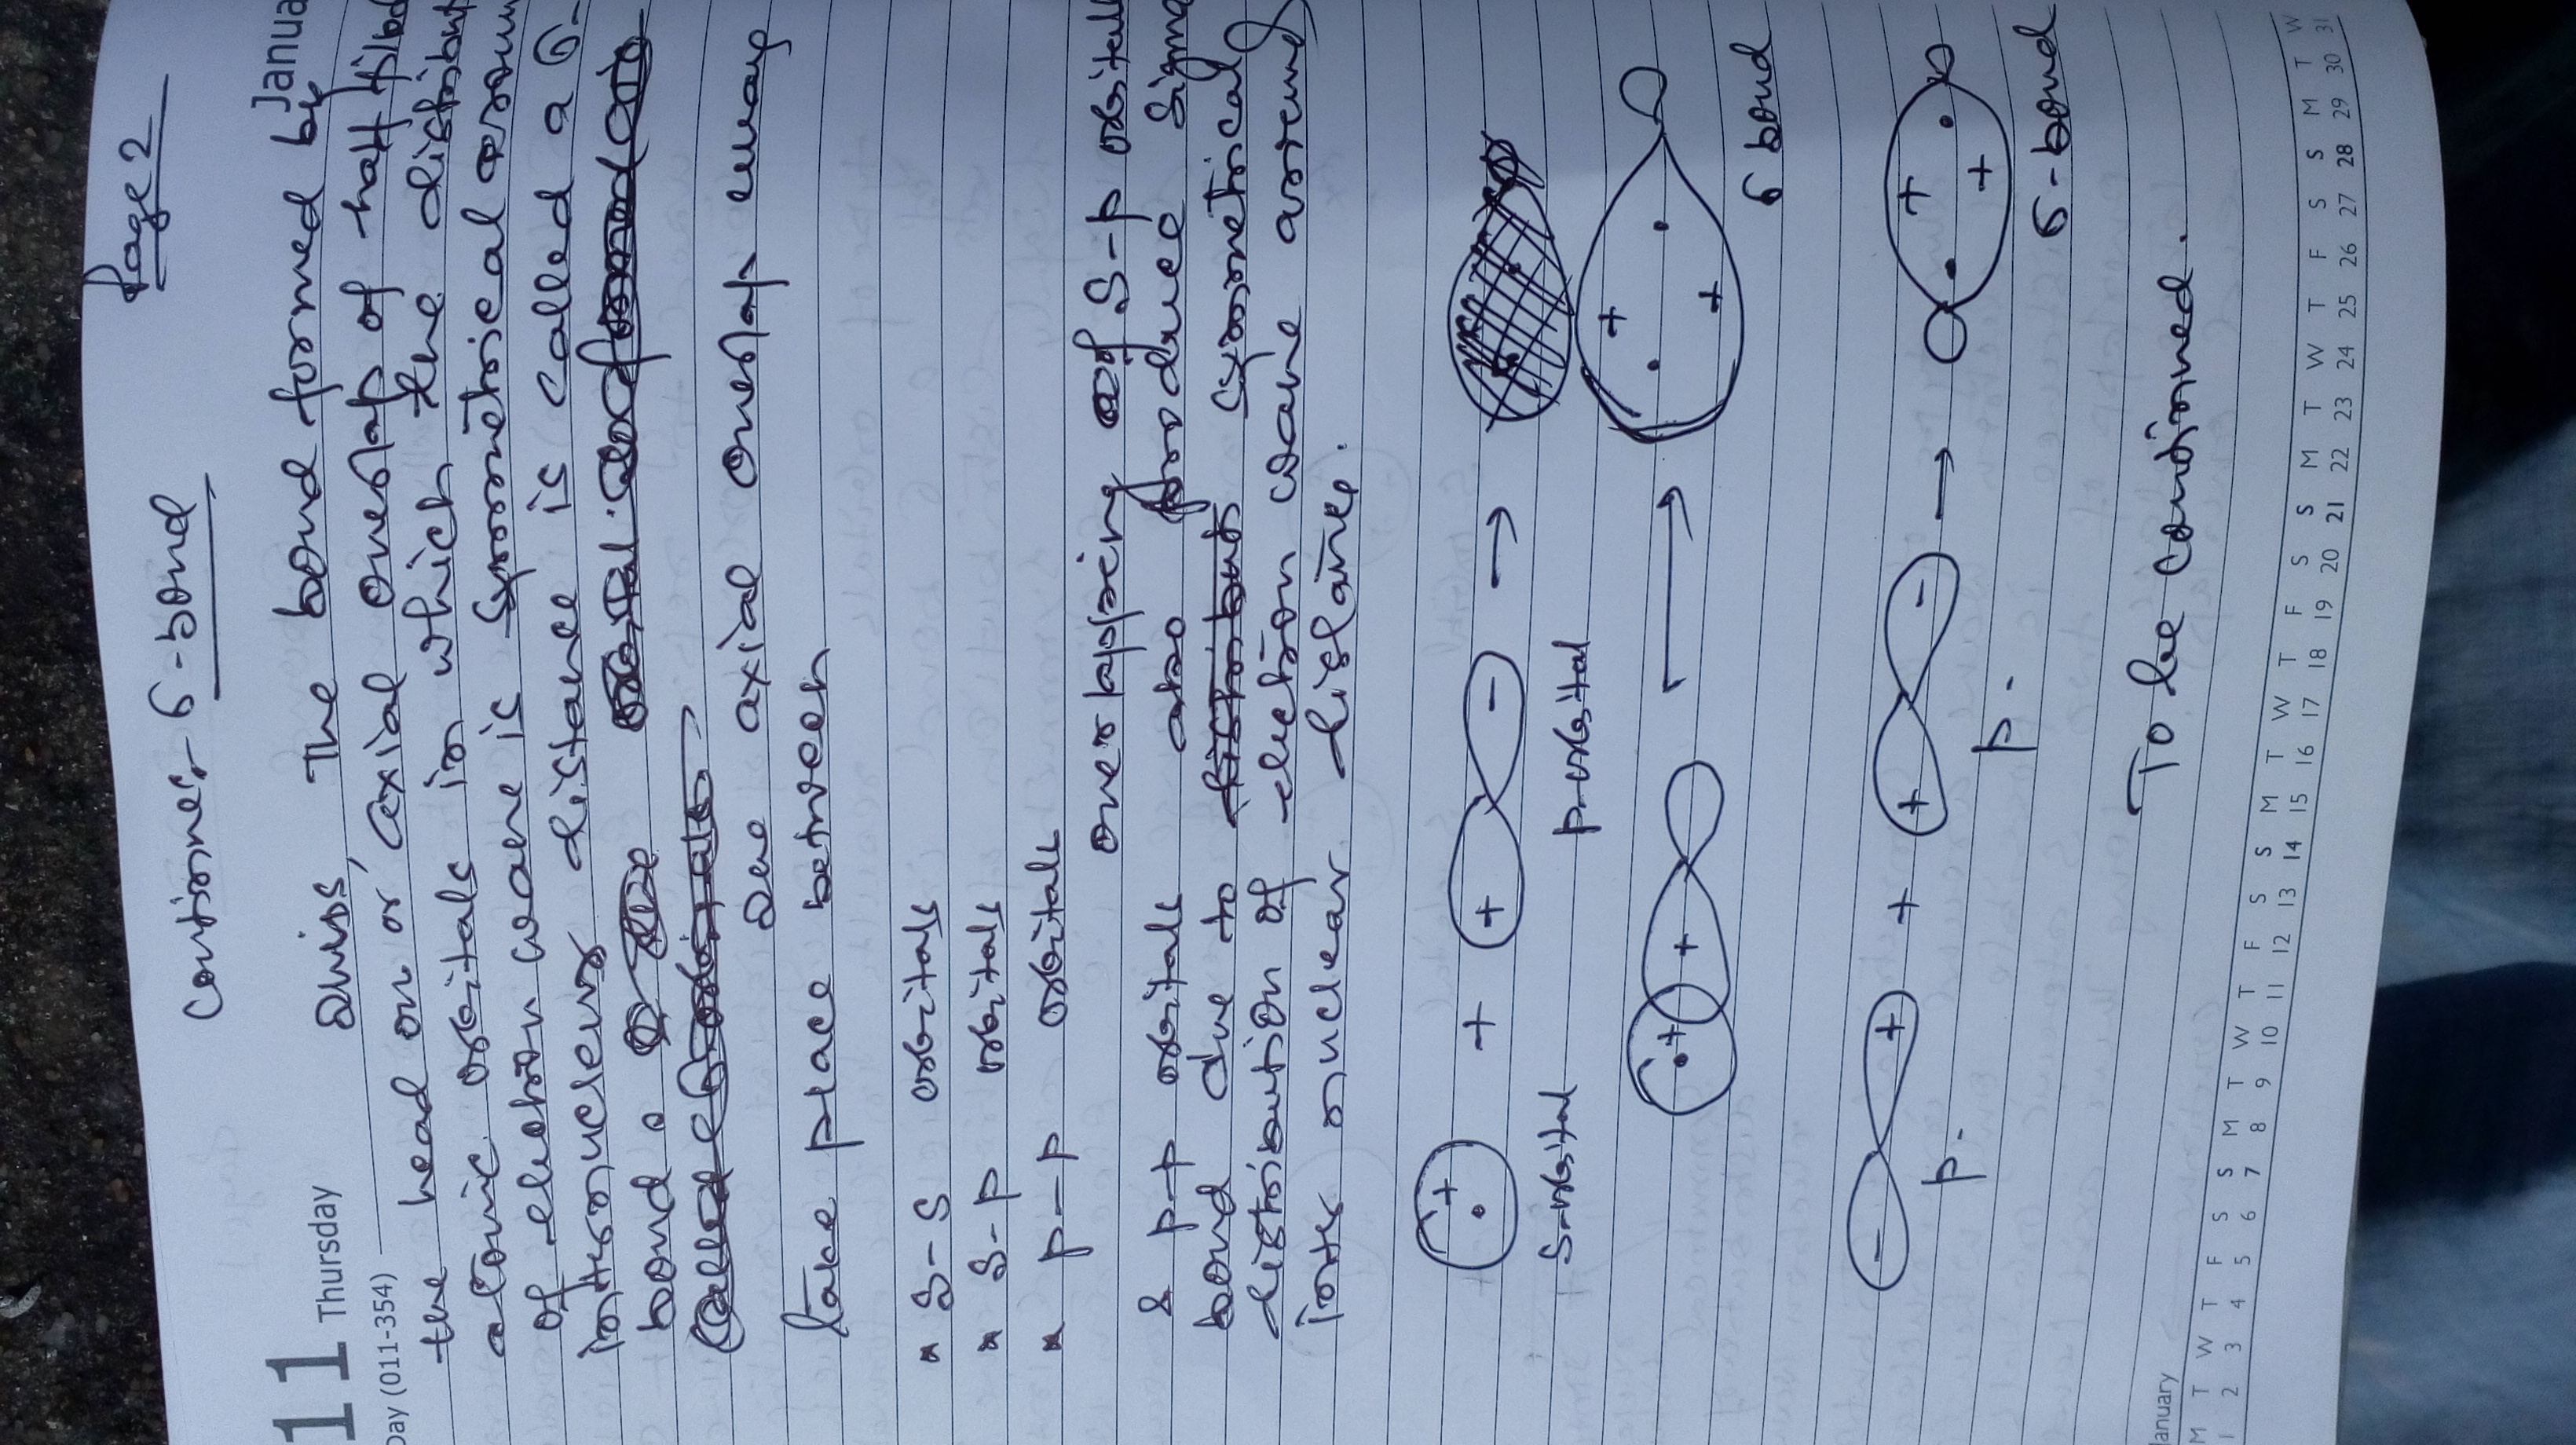 Page 2
Continue:- σ-bond
11 Thursday
Day (011-354)
Janua
Thus The bond formed by
the head on or, axial overlap of half filled
atomic orbitals in which the distribut
of electron wave is symmetrical aroun
internuclear distance is called a σ-
bond.
The axial overlap may
take place between
S-S orbitals
S-p orbitals
p-p orbitals
overlapping of S-p orbitals
& p-p orbitals also produce sigma
bond due to symmetrical
distribution of electron wave around
inter nuclear distance.
+ + + - →
S-orbital p-orbital
+ + → + +
σ bond
- + + + - → + +
p- p- σ-bond
To be continued.
January
M T W T F S S M T W T F S S M T W T F S S M T W T F S S M T W
1 2 3 4 5 6 7 8 9 10 11 12 13 14 15 16 17 18 19 20 21 22 23 24 25 26 27 28 29 30 31